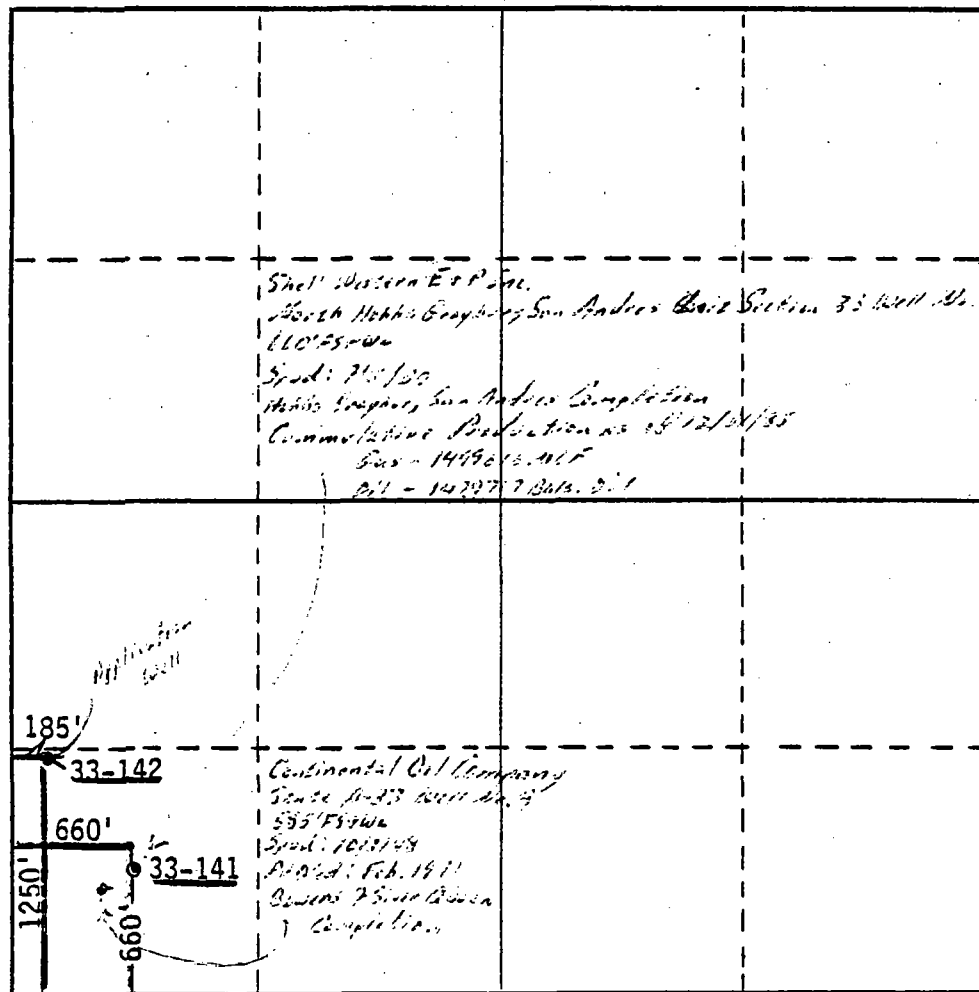 Shell Western E & P Inc.
North Hobbs Grayburg San Andres Unit Section 33 Well No.
660' FS & WL
Spud:
Hobbs Grayburg San Andres Completion
Cummulative Production as of 12/31/85
Gas - MCF
Oil - Bbls. Oil
Application
Well
185'
33-142
Continental Oil Company
State A-33 Well No.
585' FS & WL
Spud:
660'
33-141
P/A'd: Feb. 1971
Bowers 7 River Queen
Completion
1250'
660'